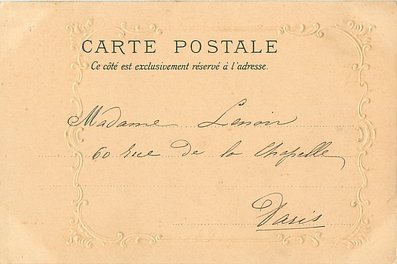 CARTE POSTALE
Ce côté est exclusivement réservé à l'adresse.
Madame Lenoir
60 rue de la Chapelle
Paris